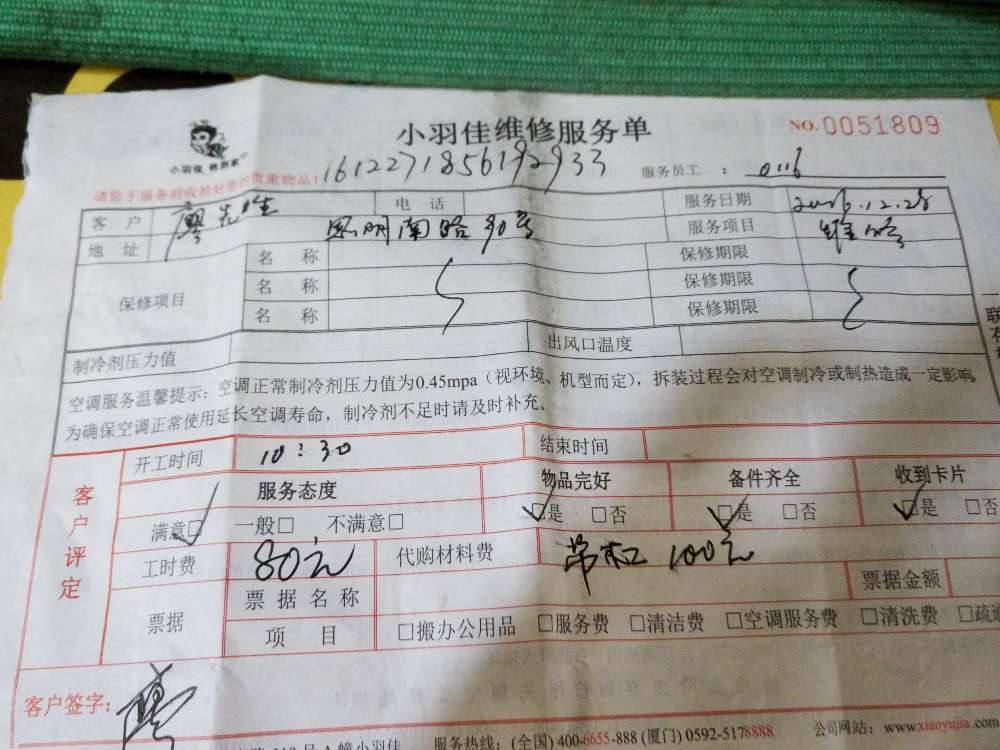 小羽佳维修服务单 NO.0051809
小羽佳
1612271856192933 服务员工 : 0116
请您于服务前收拾好您的贵重物品!
客户 廖先生 电话 服务日期 2016.12.28
地址 思明南路90号 服务项目 维修
保修项目 名称 保修期限
名称 保修期限
名称 保修期限
制冷剂压力值 出风口温度
空调服务温馨提示:空调正常制冷剂压力值为0.45mpa(视环境、机型而定),拆装过程会对空调制冷或制热造成一定影响,
为确保空调正常使用延长空调寿命,制冷剂不足时请及时补充。
客户评定 开工时间 10:30 结束时间
服务态度 物品完好 备件齐全 收到卡片
满意□ 一般□ 不满意□ □是 □否 □是 □否 □是 □否
工时费 80元 代购材料费 100元
票据 票据名称 票据金额
项目 □搬办公用品 □服务费 □清洁费 □空调服务费 □清洗费 □疏通
客户签字: 廖
号A幢小羽佳 服务热线:(全国)400-6655-888(厦门)0592-5178888 公司网站:www.xiaoyujia.com